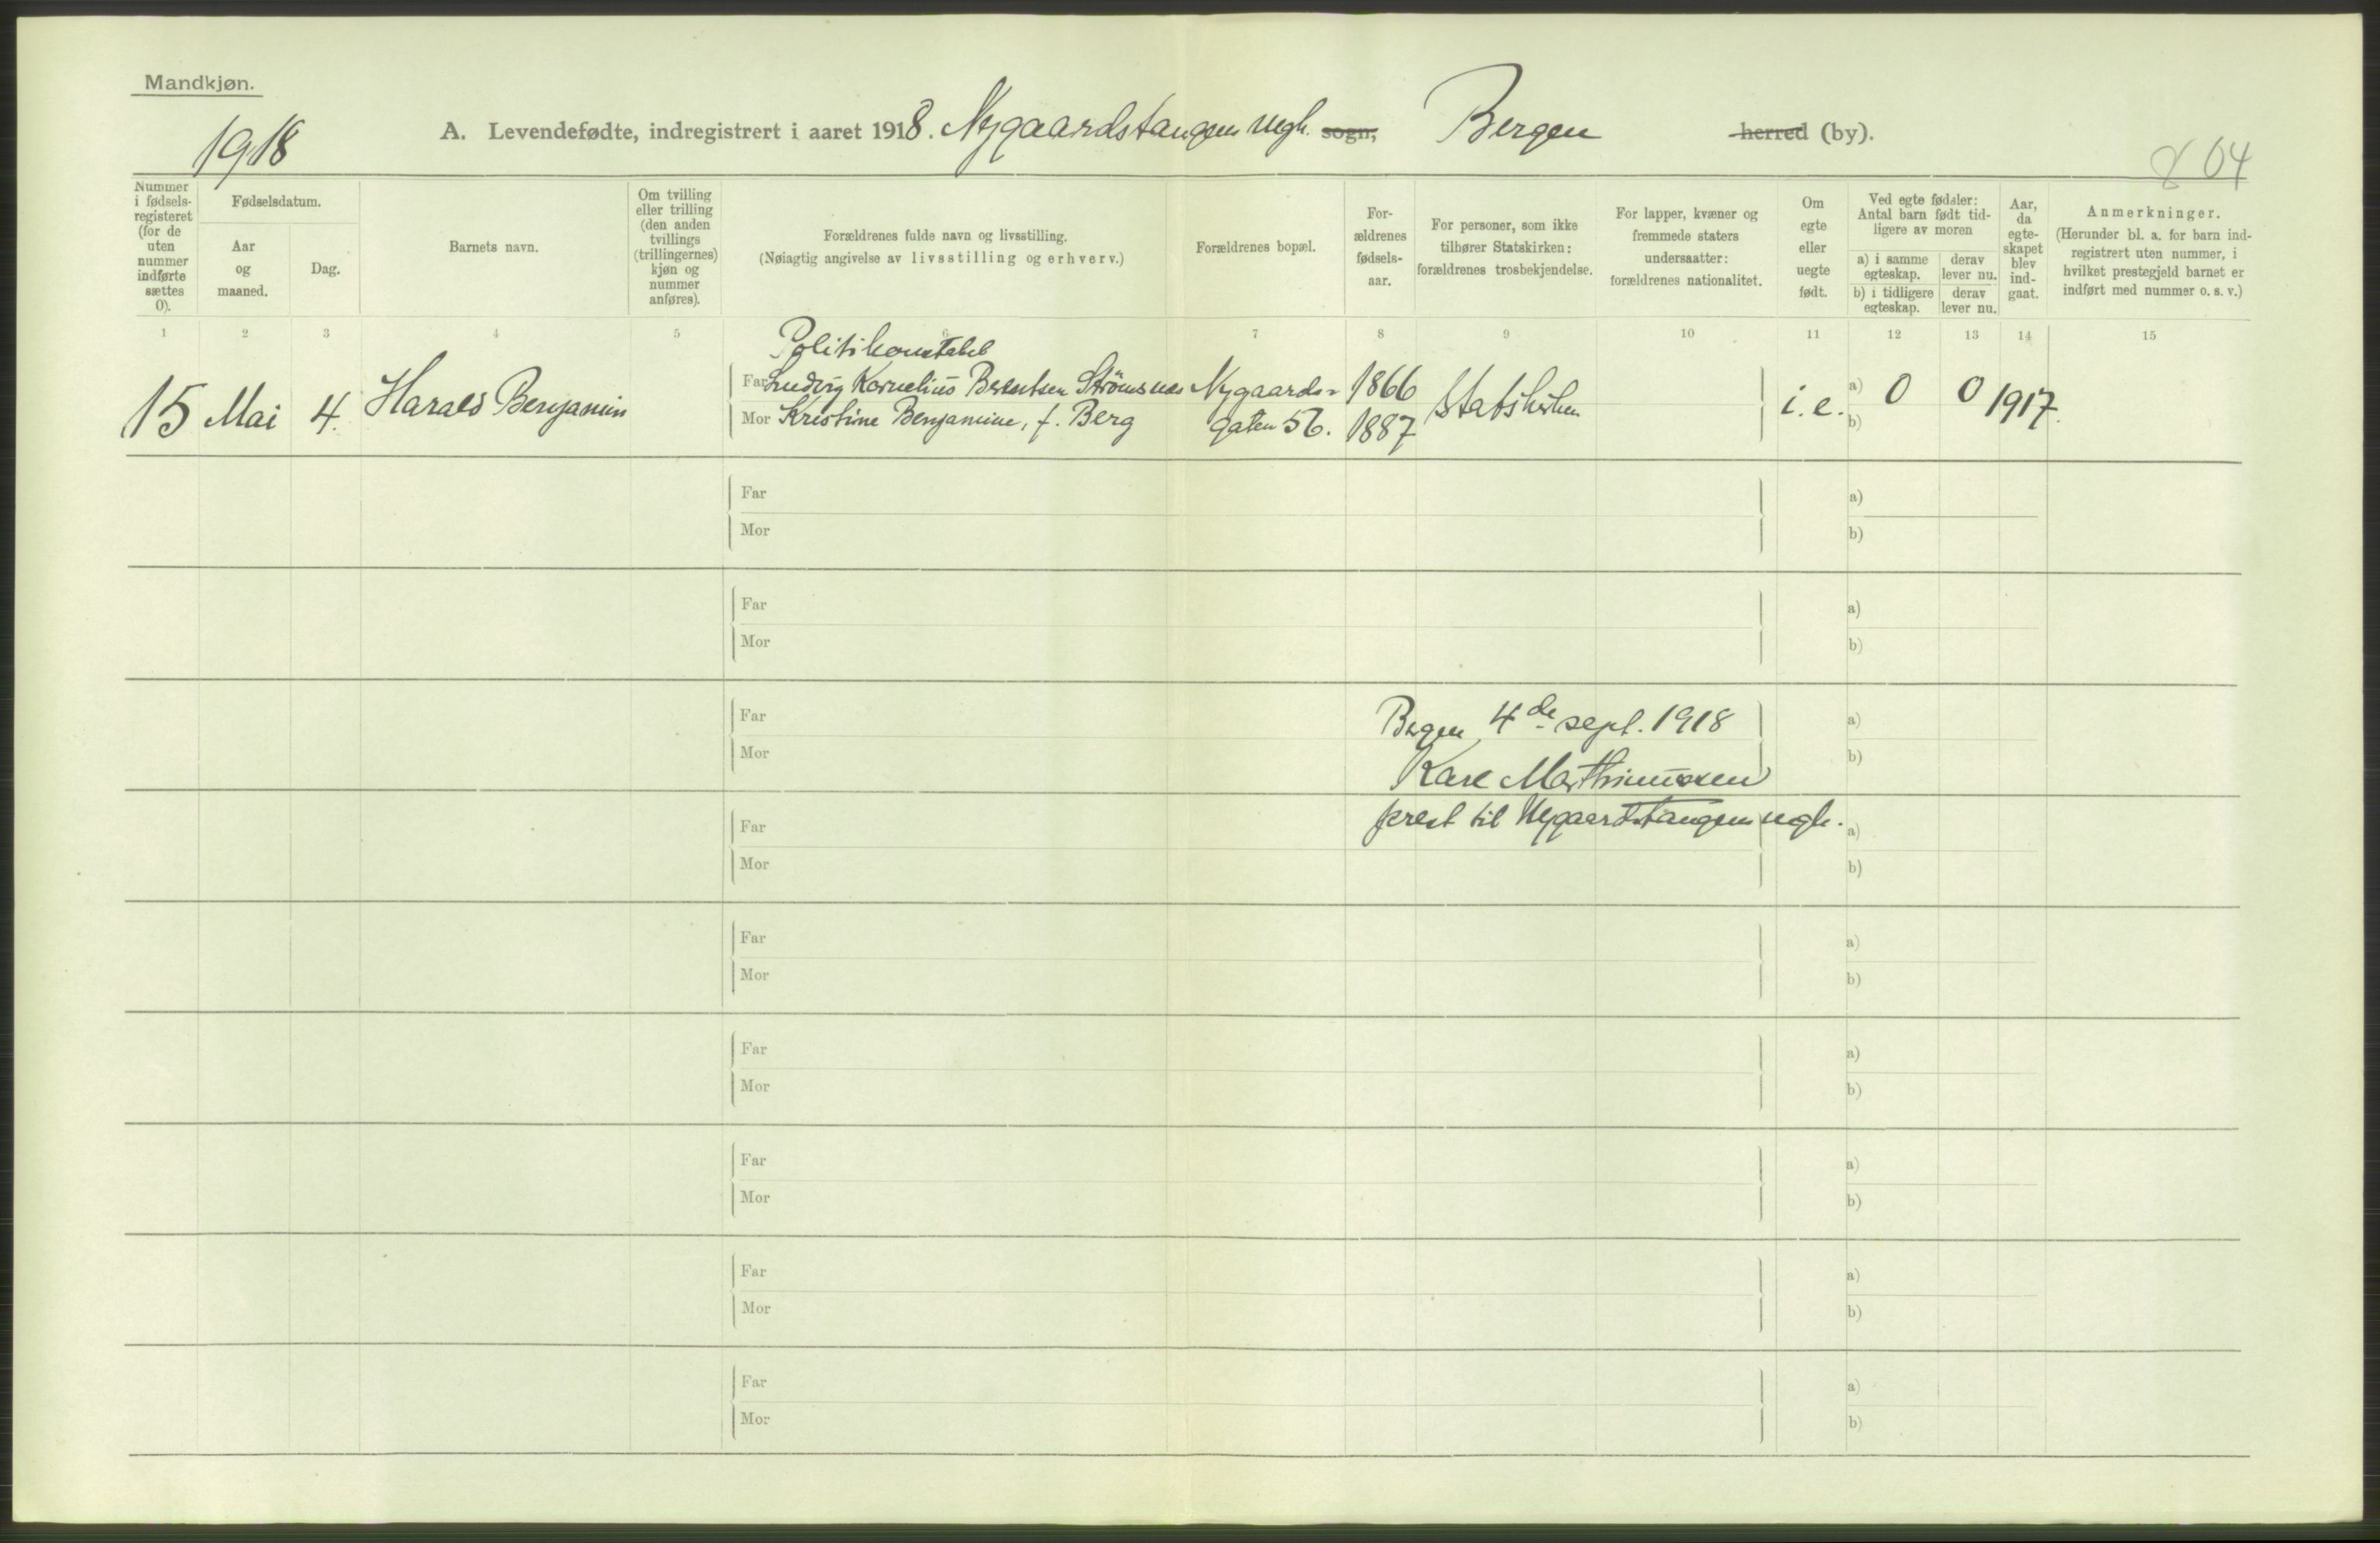 Mandkjøn.
1918
A. Levendefødte, indregistrert i aaret 1918. Nygaardstangens mgh. sogn, Bergen herred (by).
804
Nummer i fødsels-registeret (for de uten nummer indførte sættes 0).
Fødselsdatum.
Aar og maaned.
Dag.
Barnets navn.
Om tvilling eller trilling (den anden tvillings (trillingernes) kjøn og nummer anføres).
Forældrenes fulde navn og livsstilling.
(Nøiagtig angivelse av livsstilling og erhverv.)
Forældrenes bopæl.
For-ældrenes fødsels-aar.
For personer, som ikke tilhører Statskirken: forældrenes trosbekjendelse.
For lapper, kvæner og fremmede staters undersaatter: forældrenes nationalitet.
Om egte eller uegte født.
Ved egte fødsler: Antal barn født tid-ligere av moren
a) i samme egteskap.
derav lever nu.
b) i tidligere egteskap.
derav lever nu.
Aar, da egte-skapet blev ind-gaat.
Anmerkninger.
(Herunder bl. a. for barn ind-registrert uten nummer, i hvilket prestegjeld barnet er indført med nummer o. s. v.)
1 2 3 4 5 6 7 8 9 10 11 12 13 14 15
Politikonstabel
15 Mai 4. Harald Benjamin
Far Ludvig Kornelius Berentsen Strömsnes Nygaards- 1866 Statskirken i. e. a) 0 0 1917.
Mor Kristine Benjamine, f. Berg gaten 56. 1887 b)
Far a)
Mor b)
Far a)
Mor b)
Far Bergen 4de sept. 1918 a)
Mor b)
Karl Marthinussen
Far prest til Nygaardstangens mgh. a)
Mor b)
Far a)
Mor b)
Far a)
Mor b)
Far a)
Mor b)
Far a)
Mor b)
Far a)
Mor b)